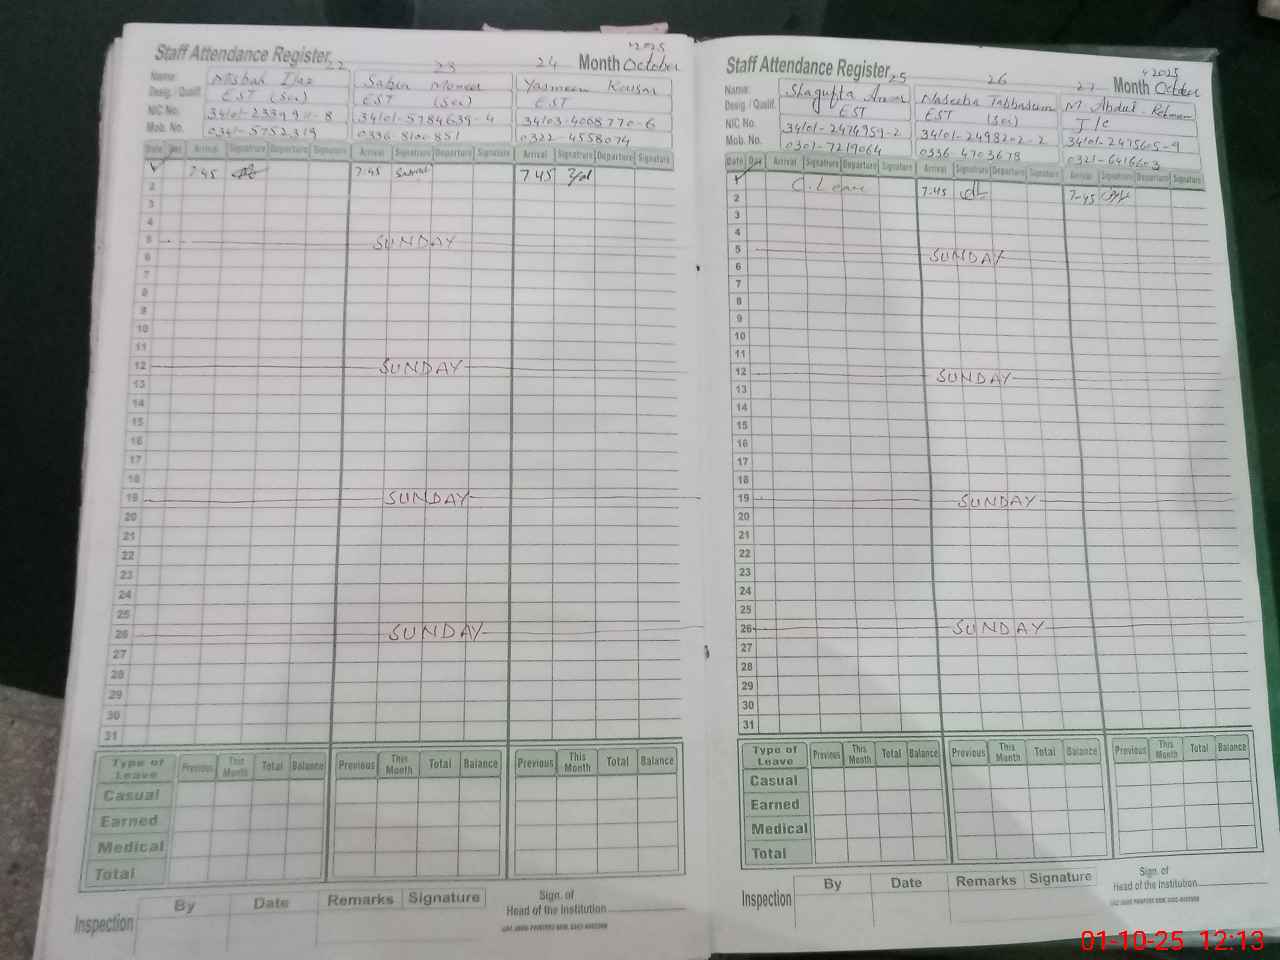 Staff Attendance Register 22 23 24 Month October 2025
Name: Misbah Sabir Yasmeen Kousar
Desig. / Qualif. EST (Sci) EST (Sci) EST
NIC No. 34101-5784639-4 34103-4068770-6
Mob. No. 0341-5752319 0336-8100851 0322-4558074
Date Day Arrival Signature Departure Signature Arrival Signature Departure Signature Arrival Signature Departure Signature
1 7:45 7:45 7 45
2
3
4
5 SUNDAY
6
7
8
9
10
11
12 SUNDAY
13
14
15
16
17
18
19 SUNDAY
20
21
22
23
24
25
26 SUNDAY
27
28
29
30
31
Type of Leave Previous This Month Total Balance Previous This Month Total Balance Previous This Month Total Balance
Casual
Earned
Medical
Total
Inspection By Date Remarks Signature Sign. of Head of the Institution
Staff Attendance Register 25 26 27 Month October 2025
Name: Shagufta Naseeba Tabbasum M. Abdul Rehman
Desig. / Qualif. EST EST (Sci)
NIC No. 34101-2474959-2 34101-2498202-2 34101-2475605-9
Mob. No. 0301-7219064 0336-4703678 0321-6416603
Date Day Arrival Signature Departure Signature Arrival Signature Departure Signature Arrival Signature Departure Signature
1 C. Leave 7:45 7-45
2
3
4
5 SUNDAY
6
7
8
9
10
11
12 SUNDAY
13
14
15
16
17
18
19 SUNDAY
20
21
22
23
24
25
26 SUNDAY
27
28
29
30
31
Type of Leave Previous This Month Total Balance Previous This Month Total Balance Previous This Month Total Balance
Casual
Earned
Medical
Total
Inspection By Date Remarks Signature Sign. of Head of the Institution
01-10-25 12:13